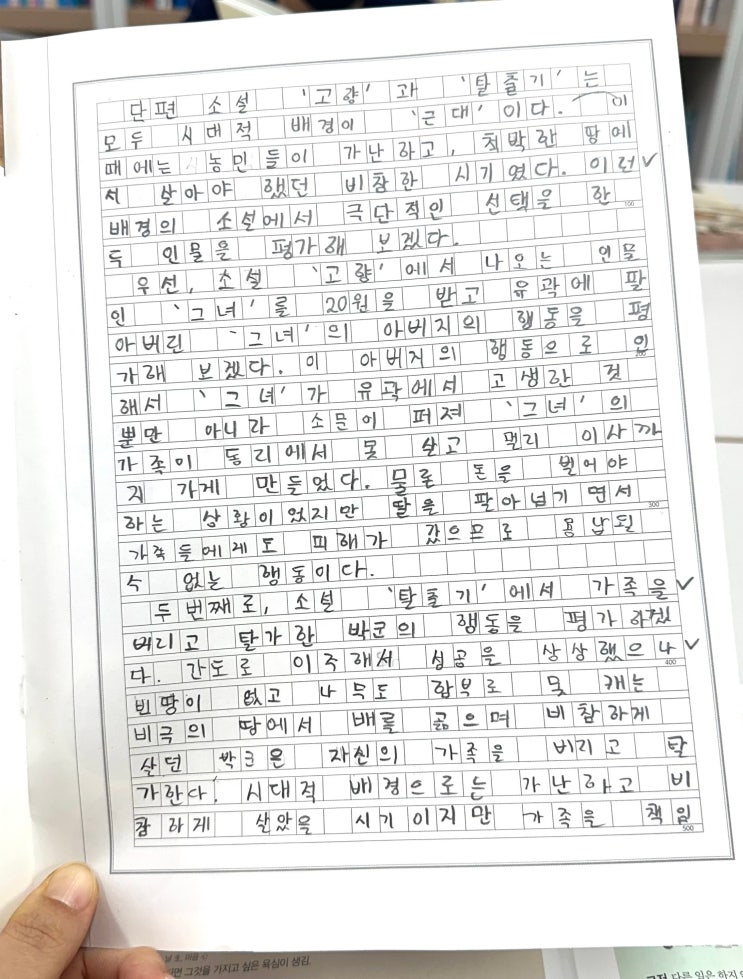 단편 소설 '고향'과 '탈출기'는
모두 시대적 배경이 '근대'이다. 이
때에는 농민들이 가난하고, 척박한 땅에
서 살아야 했던 비참한 시기였다. 이런
배경의 소설에서 극단적인 선택을 한
100
두 인물을 평가해 보겠다.
우선, 소설 '고향'에서 나오는 인물
인 '그녀'를 20원을 받고 유곽에 팔
아버린 '그녀'의 아버지의 행동을 평
가해 보겠다. 이 아버지의 행동으로 인
200
해서 '그녀'가 유곽에서 고생한 것
뿐만 아니라 소문이 퍼져 '그녀'의
가족이 동리에서 못 살고 멀리 이사까
지 가게 만들었다. 물론 돈을 벌어야
하는 상황이었지만 딸을 팔아넘기면서
300
가족들에게도 피해가 갔으므로 용납될
수 없는 행동이다.
두번째로, 소설 '탈출기'에서 가족을
버리고 탈가한 박군의 행동을 평가하겠
다. 간도로 이주해서 성공을 상상했으나
400
빈땅이 없고 나무도 함부로 못 캐는
비극의 땅에서 배를 곪으며 비참하게
살던 박군은 자신의 가족을 버리고 탈
가한다. 시대적 배경으로는 가난하고 비
참하게 살았을 시기이지만 가족을 책임
500
면 그것을 가지고 싶은 욕심이 생김.